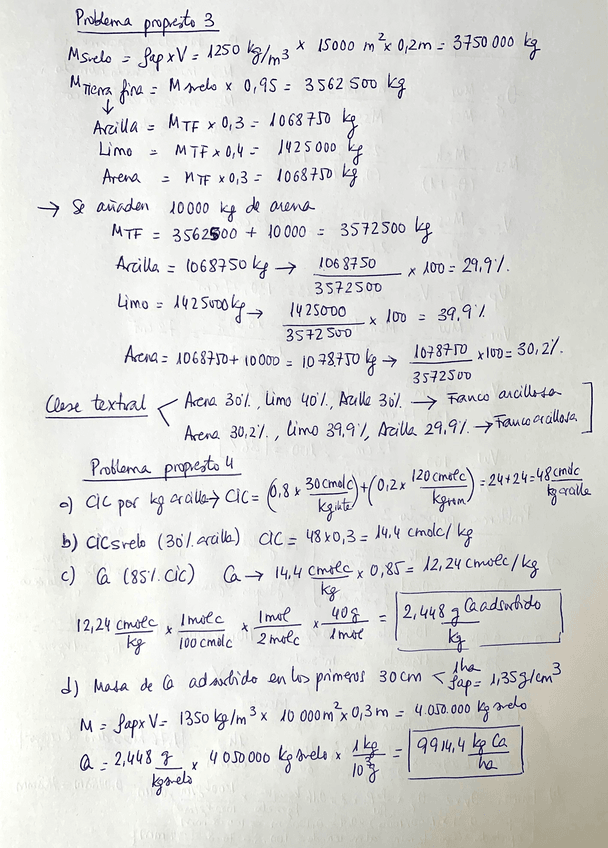 Problema propuesto 3
Msuelo = ρap x V = 1250 kg/m³ x 15000 m² x 0,2m = 3750 000 kg
MTierra fina = Msuelo x 0,95 = 3562 500 kg
↓
Arcilla = MTF x 0,3 = 1068750 kg
Limo = MTF x 0,4 = 1425000 kg
Arena = MTF x 0,3 = 1068750 kg
→ Se añaden 10000 kg de arena
MTF = 3562500 + 10000 = 3572500 kg
Arcilla = 1068750 kg → 1068750/3572500 x 100 = 29,9%.
Limo = 1425000 kg → 1425000/3572500 x 100 = 39,9%
Arena = 1068750 + 10000 = 1078750 kg → 1078750/3572500 x 100 = 30,2%.
Clase textural < Arena 30%, Limo 40%, Arcilla 30% → Franco arcillosa
Arena 30,2%, Limo 39,9%, Arcilla 29,9% → Franco arcillosa
Problema propuesto 4
a) CIC por kg arcilla → CIC = (0,8 x 30 cmolc/kg ilita) + (0,2 x 120 cmolc/kg vem) = 24 + 24 = 48 cmolc/kg arcilla
b) CIC suelo (30% arcilla) CIC = 48 x 0,3 = 14,4 cmolc/kg
c) Ca (85% CIC) Ca → 14,4 cmolc/kg x 0,85 = 12,24 cmolc/kg
12,24 cmolc/kg x 1molc/100 cmolc x 1mol/2molc x 40g/1mol = 2,448 g Ca adsorbido/kg
d) Masa de Ca adsorbido en los primeros 30 cm < 1ha
ρap = 1,35 g/cm³
M = ρap x V = 1350 kg/m³ x 10 000 m² x 0,3 m = 4.050.000 kg suelo
Ca = 2,448 g/kg suelo x 4 050 000 kg suelo x 1 kg/10³ g = 9914,4 kg Ca/ha